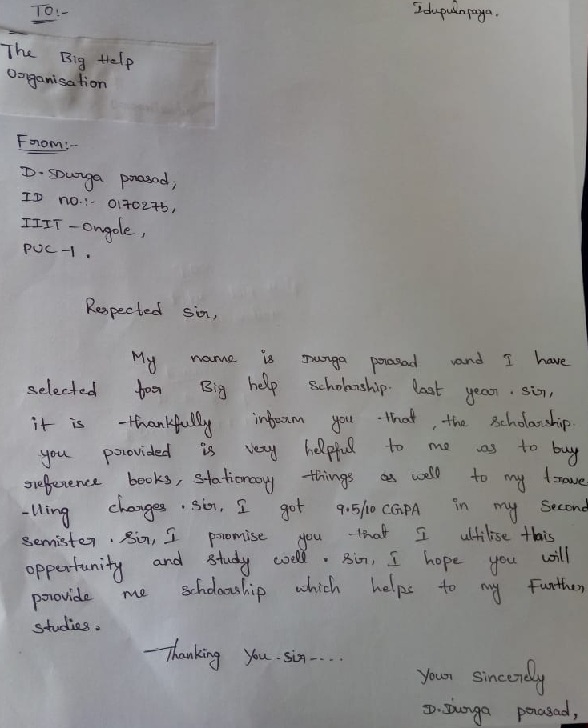 TO:-
Idupulapaya.
The Big Help
Organisation
From:-
D. Durga prasad,
ID no:- 0170275,
IIIT - Ongole,
PUC-1.
Respected sir,
My name is Durga prasad and I have
selected for Big help Scholarship. last year. sir,
it is thankfully inform you that, the scholarship
you provided is very helpful to me as to buy
reference books, stationary things as well to my trave
-lling charges. sir, I got 9.5/10 CGPA in my Second
semister. sir, I promise you that I ultilise this
opportunity and study well. sir, I hope you will
provide me scholarship which helps to my Further
studies.
Thanking you sir----
Your Sincerely
D. Durga prasad,